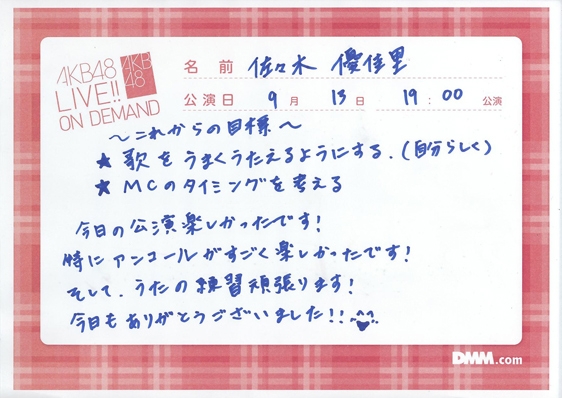 AKB48
LIVE!!
ON DEMAND
AKB
48
名前 佐々木 優佳里
公演日 9月 13日 19:00 公演
～これからの目標～
★ 歌をうまくうたえるようにする.(自分らしく)
★ MCのタイミングを考える
今日の公演楽しかったです!
特にアンコールがすごく楽しかったです!
そして、うたの練習頑張ります!
今日もありがとうございました!!
DMM.com